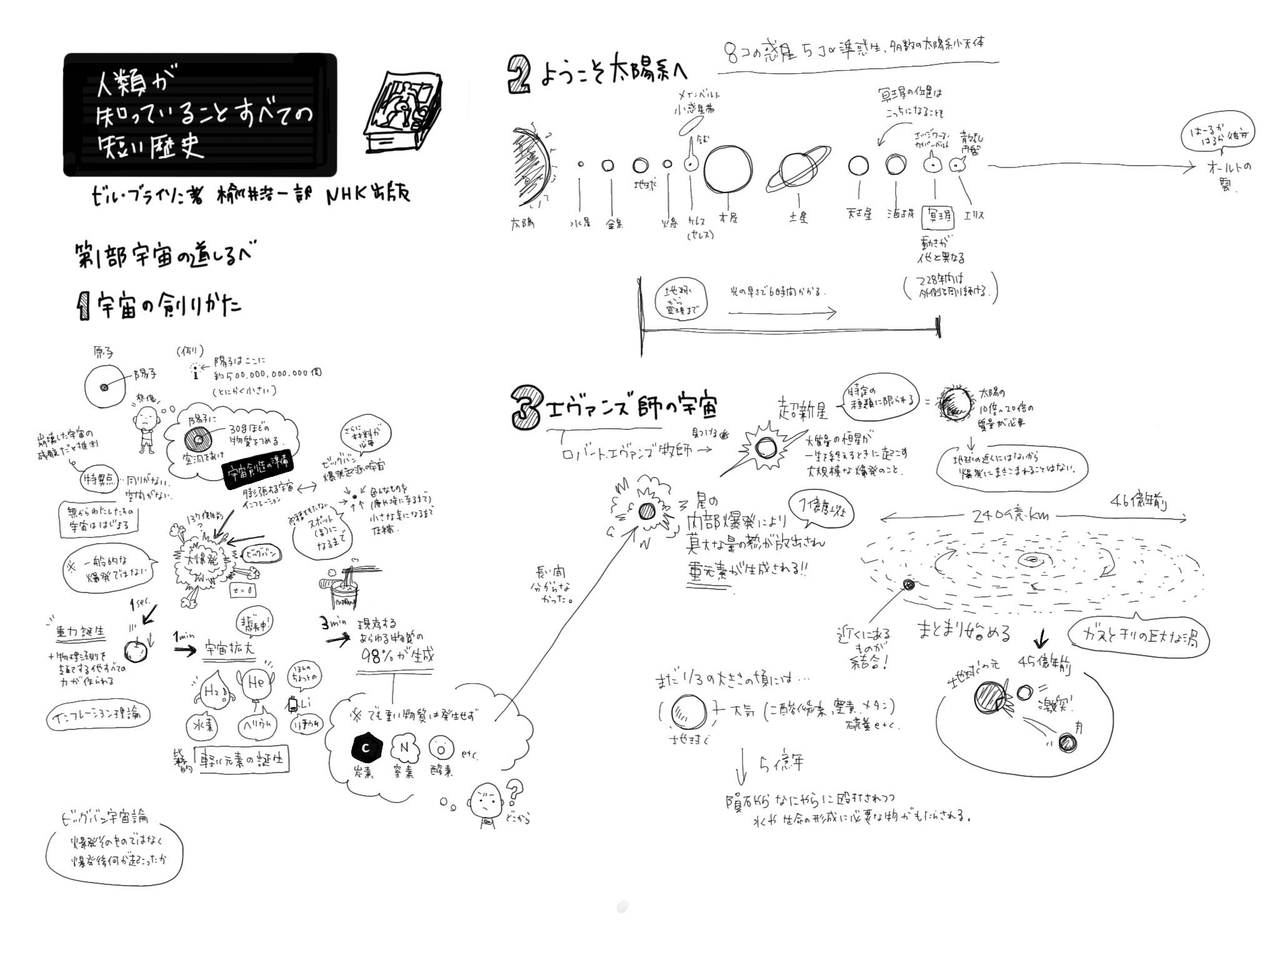 人類が
知っていることすべての
短い歴史
ビル・ブライソン著 楡井浩一訳 NHK出版
第1部 宇宙の道しるべ
1 宇宙の創りかた
原子
陽子
(例)
i ← 陽子はここに
約500,000,000,000個
(とにかく小さい)
想像
陽子に
30gほどの
物質をつめる。
空洞をあけ
宇宙創造の準備
さらに
材料が
必要
崩壊した宇宙の
残骸だと推測
特異点
…まわりがない。
空間がない。
無からわたしたちの
宇宙ははじまる
膨張する宇宙
インフレーション
ビッグバン
爆発起源の宇宙
スポット
になるまで
小さな点になるまで
圧縮。
137億年前
?
大爆発
ビッグバン
t=0
※ 一般的な
爆発ではない
1 sec.
重力誕生
+物理法則を
支配する他すべての
力が作られる
インフレーション理論
1 min
宇宙拡大
H2
He
Li
水素
ヘリウム
リチウム
軽い元素の誕生
3 min
現存する
あらゆる物質の
98%が生成
※ でも重い物質は発生せず
C
N
O
etc.
炭素
窒素
酸素
?
どこから
ビッグバン宇宙論
爆発そのものではなく
爆発後何が起こったか
2 ようこそ太陽系へ
8コの惑星 5コの準惑星、多数の太陽系小天体
メインベルト
小惑星帯
冥王星の位置は
こっちになることも
エッジワース・
カイパーベルト
散乱
円盤
はーるか
はるか彼方
オールトの
雲
太陽
水星
金星
地球
火星
ケレス
(セレス)
木星
土星
天王星
海王星
冥王星
エリス
動きが
他と異なる
(228年間は
外側を周り続ける。)
地球
から
冥王星まで
光の早さで6時間かかる。
3 エヴァンズ師の宇宙
ロバート・エヴァンズ牧師 →
見つける
超新星
特定の
種類に限られる
=
太陽の
10倍〜20倍の
質量が必要
大質量の恒星が
一生を終えるときに起こす
大規模な爆発のこと。
地球の近くにはないから
爆発にまきこまれることはない。
星の
内部爆発により
莫大な量の熱が放出され
重元素が生成される!!
1億度以上
長い間
分からな
かった。
46億年前
240億km
近くにある
ものが
結合!
まとまり始める
ガスとチリの巨大な渦
45億年前
地球の元
=
激突!
月
まだ1/3の大きさの頃には…
地球
+大気 (二酸化炭素、窒素、メタン)
硫黄 etc.
5億年
隕石やらなにやらに殴打されつつ
水や生命の形成に必要な物がもたらされる。